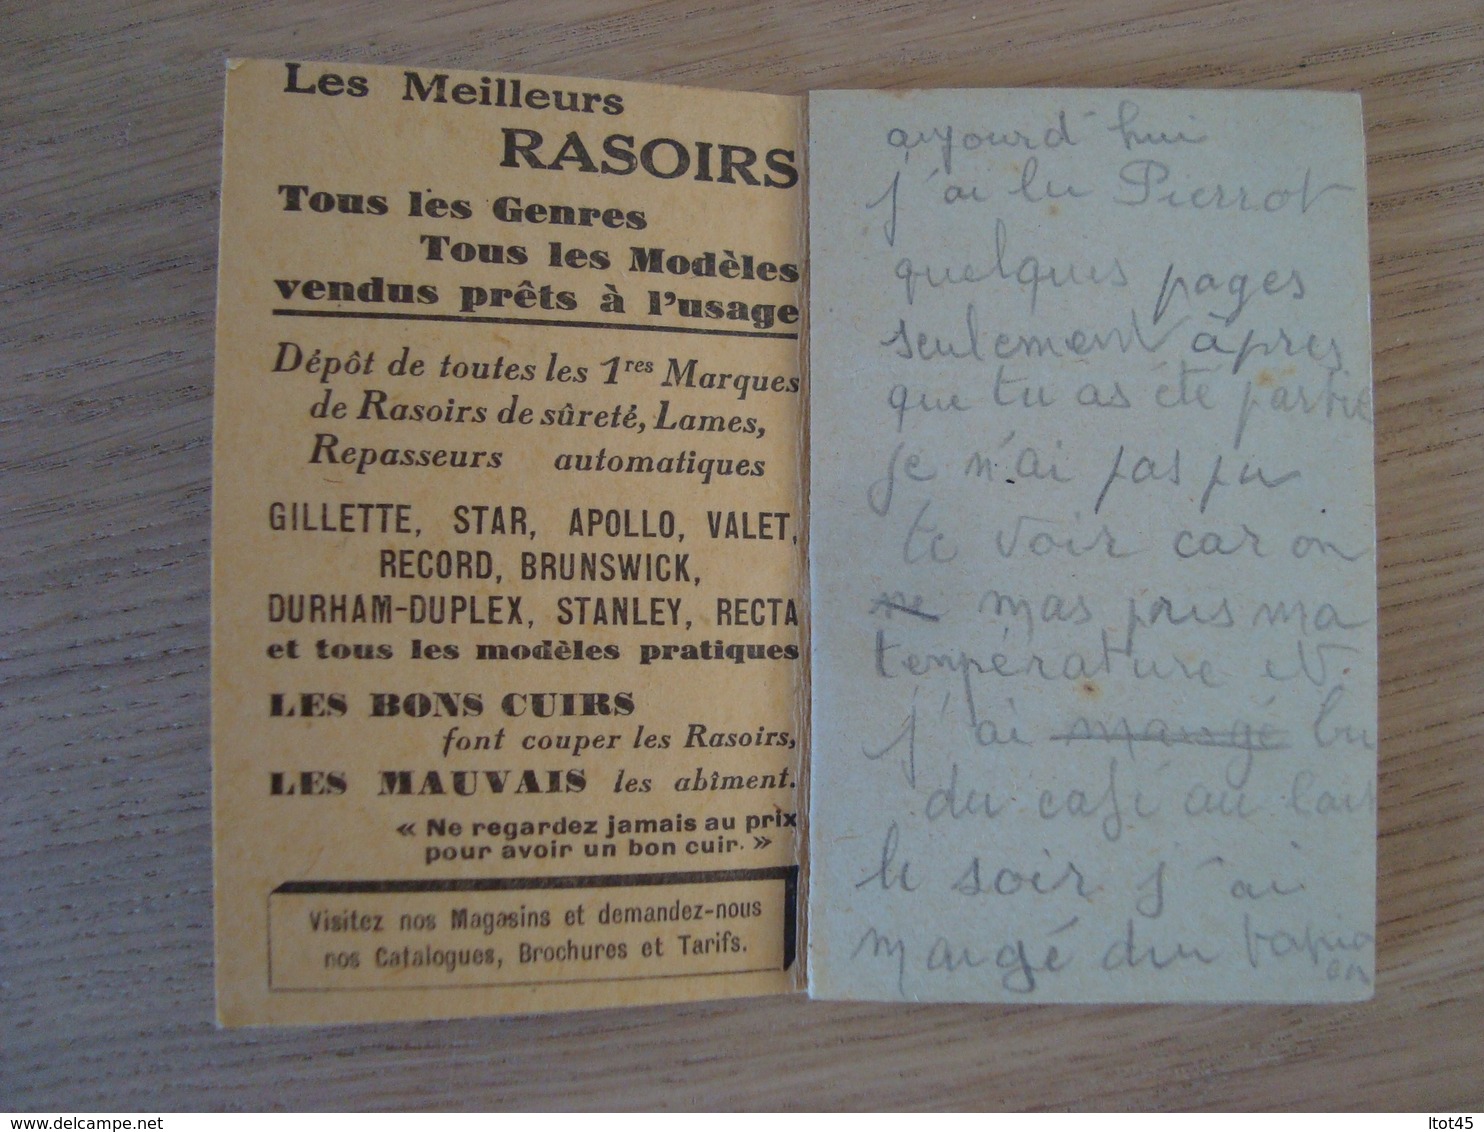 Les Meilleurs
RASOIRS
Tous les Genres
Tous les Modèles
vendus prêts à l'usage
Dépôt de toutes les 1res Marques
de Rasoirs de sûreté, Lames,
Repasseurs automatiques
GILLETTE, STAR, APOLLO, VALET,
RECORD, BRUNSWICK,
DURHAM-DUPLEX, STANLEY, RECTA
et tous les modèles pratiques
LES BONS CUIRS
font couper les Rasoirs,
LES MAUVAIS les abîment.
« Ne regardez jamais au prix
pour avoir un bon cuir. »
Visitez nos Magasins et demandez-nous
nos Catalogues, Brochures et Tarifs.
aujourd'hui
j'ai lu Pierrot
quelques pages
seulement àpres
que tu as été partie
je n'ai pas pu
te voir car on
ne mas pris ma
température et
j'ai mangé bu
du café au lait
le soir j'ai
mangé du tapio
Itot45